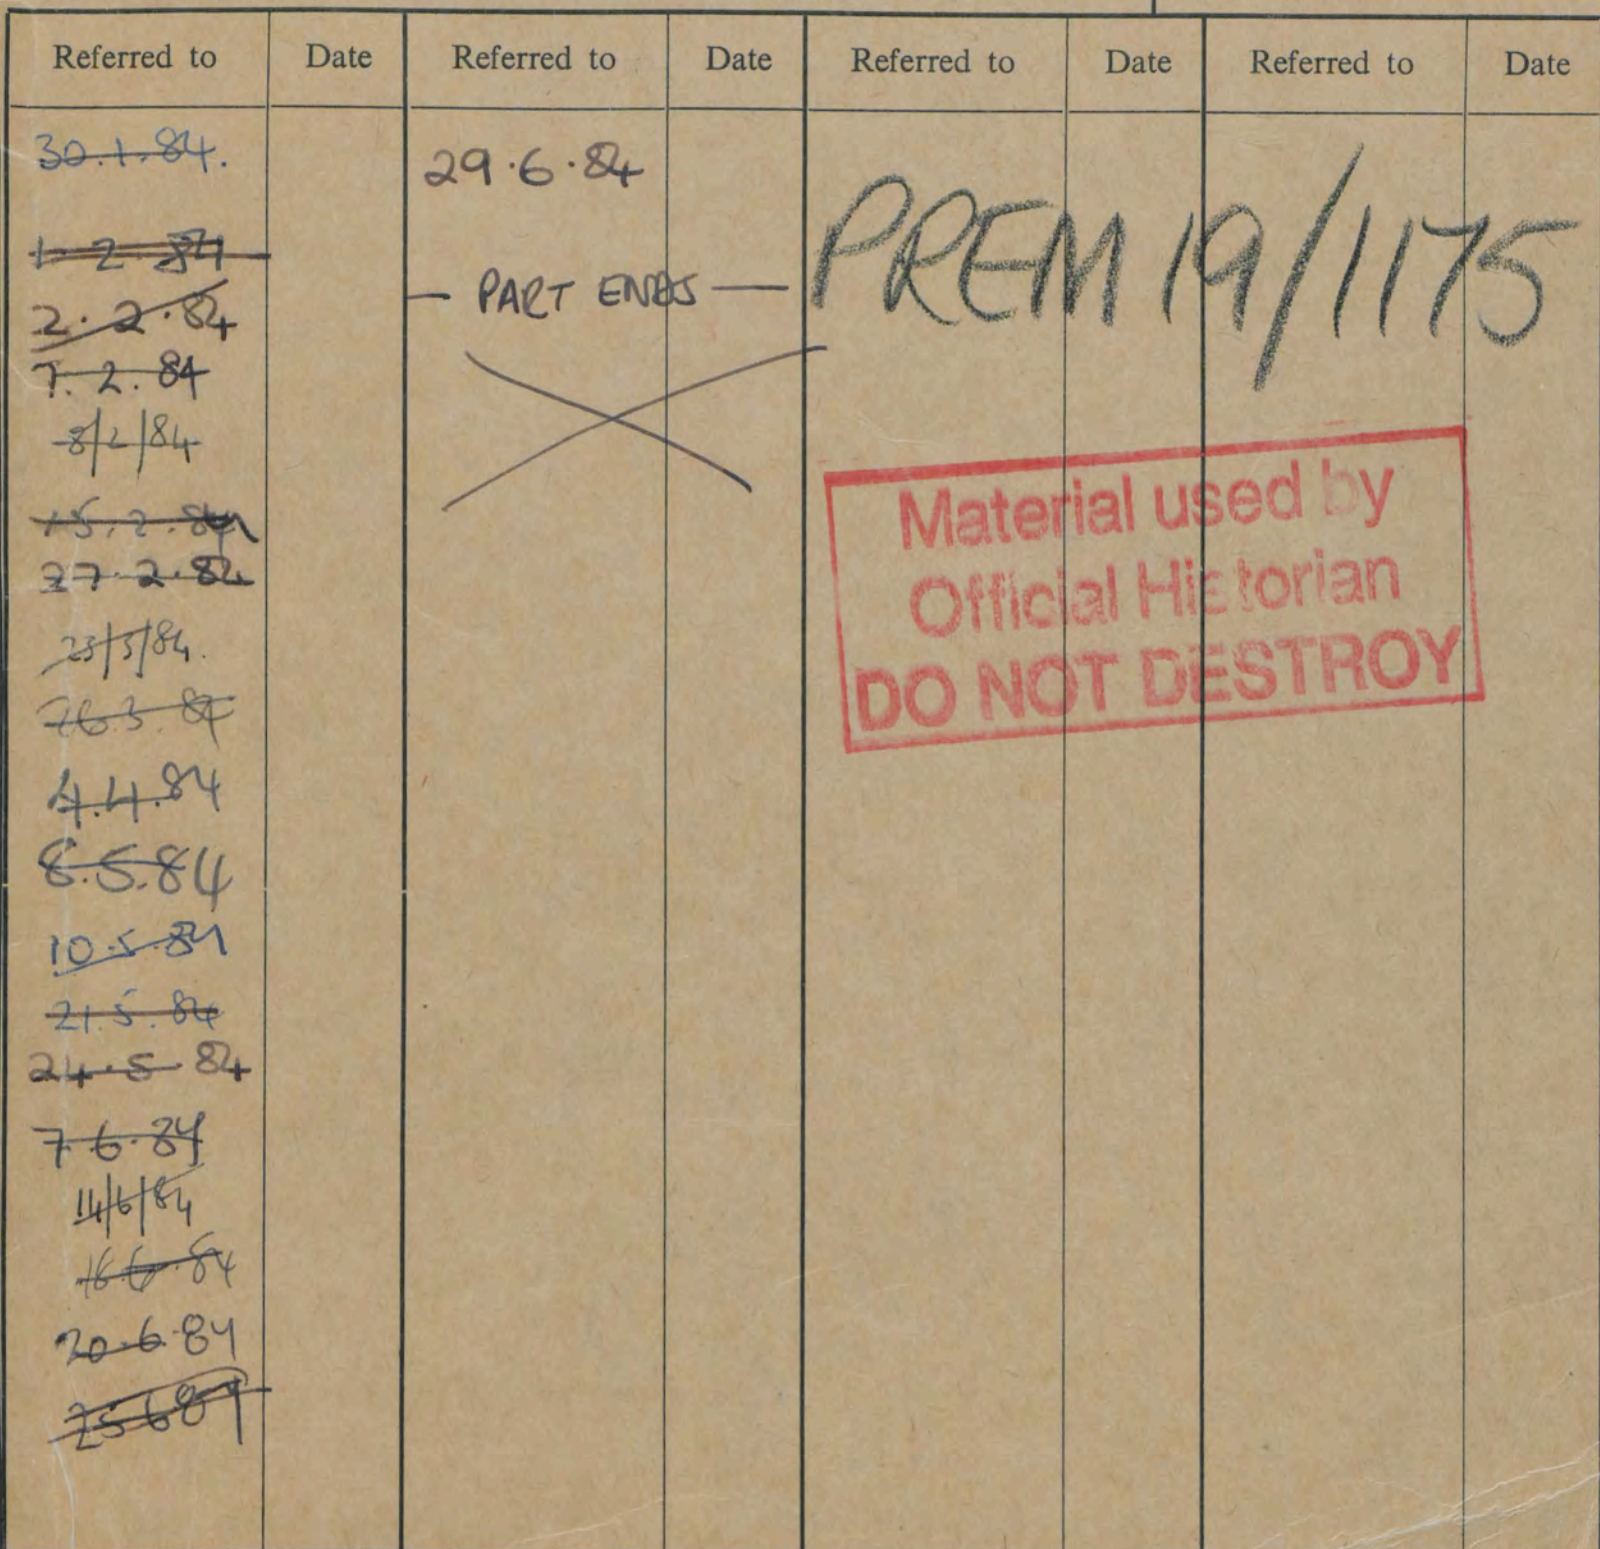 Referred to Date Referred to Date Referred to Date Referred to Date
30.1.84.
1.2.84
2.2.84
7.2.84
8/2/84
15.2.84
27.2.84
23/3/84.
26.3.84
4.4.84
8.5.84
10.5.84
21.5.84
24.5.84
7.6.84
14/6/84
16.6.84
20.6.84
25.6.84
29.6.84
— PART ENDS —
PREM 19/1175
Material used by
Official Historian
DO NOT DESTROY